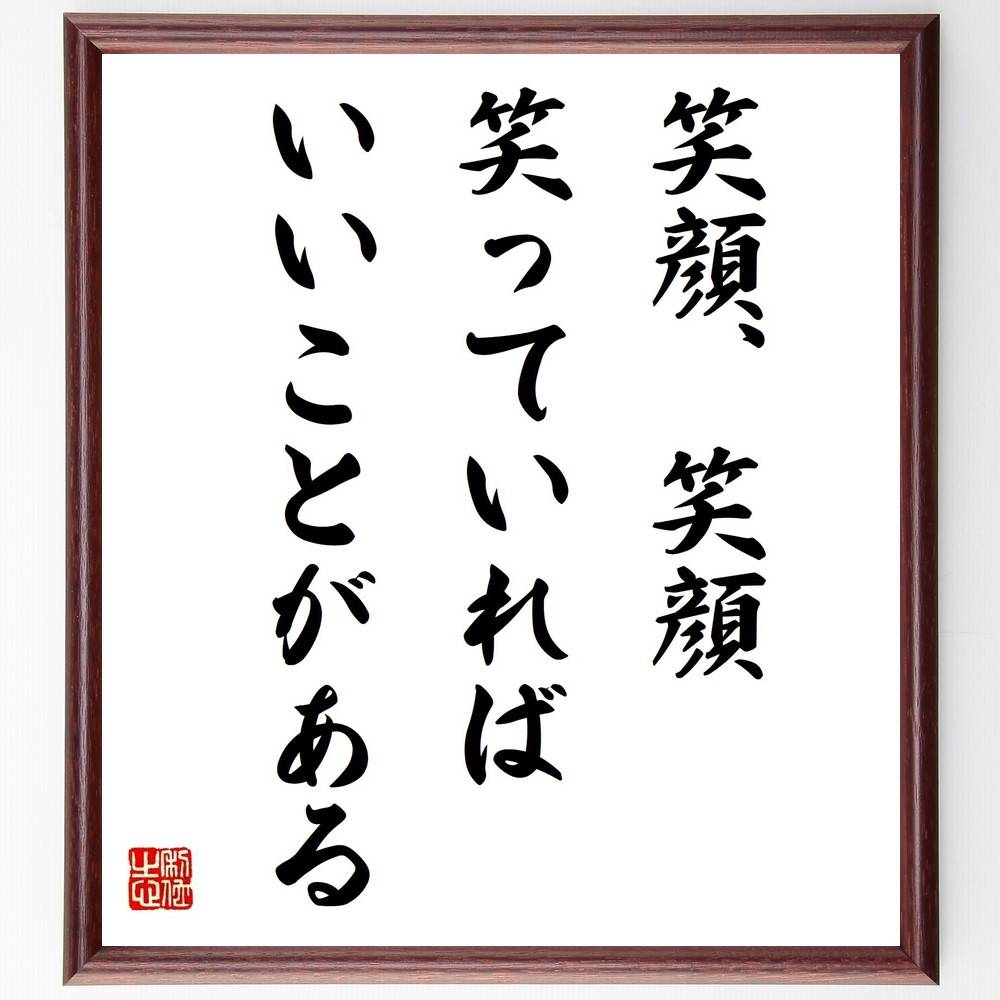 笑顔、　笑顔
笑っていれば
いいことがある